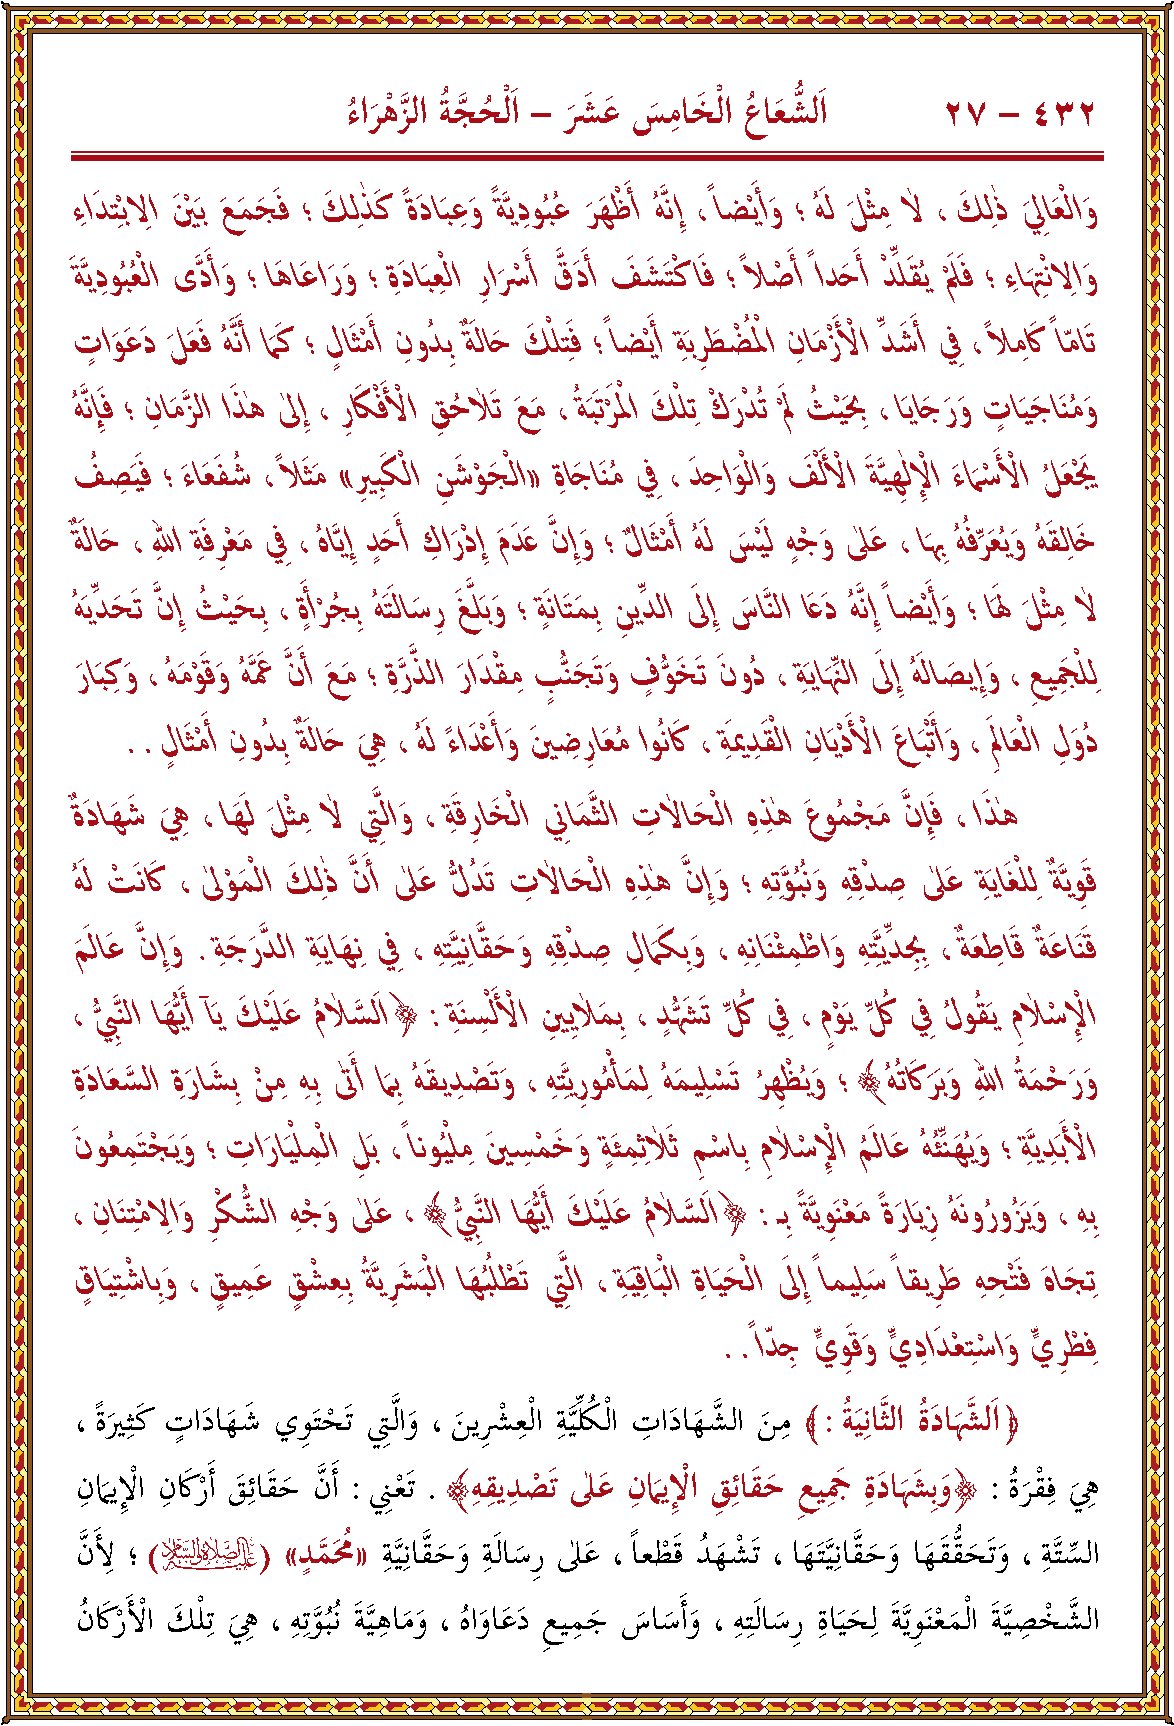 ٤٣٢ – ٢٧ اَلشُّعَاعُ الْخَامِسَ عَشَرَ – اَلْحُجَّةُ الزَّهْرَاءُ
وَالْعَالِيَ ذٰلِكَ ، لَا مِثْلَ لَهُ ؛ وَأَيْضاً ، إِنَّهُ أَظْهَرَ عُبُودِيَّةً وَعِبَادَةً كَذٰلِكَ ؛ فَجَمَعَ بَيْنَ الِابْتِدَاءِ
وَالِانْتِهَاءِ ؛ فَلَمْ يُقَلِّدْ أَحَداً أَصْلاً ؛ فَاكْتَشَفَ أَدَقَّ أَسْرَارِ الْعِبَادَةِ ؛ وَرَاعَاهَا ؛ وَأَدَّى الْعُبُودِيَّةَ
تَامّاً كَامِلاً ، فِي أَشَدِّ الْأَزْمَانِ الْمُضْطَرِبَةِ أَيْضاً ؛ فَتِلْكَ حَالَةٌ بِدُونِ أَمْثَالٍ ؛ كَمَا أَنَّهُ فَعَلَ دَعَوَاتٍ
وَمُنَاجَيَاتٍ وَرَجَايَا ، بِحَيْثُ لَمْ تُدْرَكْ تِلْكَ الْمَرْتَبَةُ ، مَعَ تَلَاحُقِ الْأَفْكَارِ ، إِلَى هٰذَا الزَّمَانِ ؛ فَإِنَّهُ
يَجْعَلُ الْأَسْمَاءَ الْإِلٰهِيَّةَ الْأَلْفَ وَالْوَاحِدَ ، فِي مُنَاجَاةِ «الْجَوْشَنِ الْكَبِيرِ» مَثَلاً ، شُفَعَاءَ ؛ فَيَصِفُ
خَالِقَهُ وَيُعَرِّفُهُ بِهَا ، عَلَى وَجْهٍ لَيْسَ لَهُ أَمْثَالٌ ؛ وَإِنَّ عَدَمَ إِدْرَاكِ أَحَدٍ إِيَّاهُ ، فِي مَعْرِفَةِ اللهِ ، حَالَةٌ
لَا مِثْلَ لَهَا ؛ وَأَيْضاً إِنَّهُ دَعَا النَّاسَ إِلَى الدِّينِ بِمَتَانَةٍ ؛ وَبَلَّغَ رِسَالَتَهُ بِجُرْأَةٍ ، بِحَيْثُ إِنَّ تَحَدِّيَهُ
لِلْجَمِيعِ ، وَإِيصَالَهُ إِلَى النِّهَايَةِ ، دُونَ تَخَوُّفٍ وَتَجَنُّبٍ مِقْدَارَ الذَّرَّةِ ؛ مَعَ أَنَّ عَمَّهُ وَقَوْمَهُ ، وَكِبَارَ
دُوَلِ الْعَالَمِ ، وَأَتْبَاعَ الْأَدْيَانِ الْقَدِيمَةِ ، كَانُوا مُعَارِضِينَ وَأَعْدَاءً لَهُ ، هِيَ حَالَةٌ بِدُونِ أَمْثَالٍ . .
هٰذَا ، فَإِنَّ مَجْمُوعَ هٰذِهِ الْحَالَاتِ الثَّمَانِي الْخَارِقَةِ ، وَالَّتِي لَا مِثْلَ لَهَا ، هِيَ شَهَادَةٌ
قَوِيَّةٌ لِلْغَايَةِ عَلَى صِدْقِهِ وَنُبُوَّتِهِ ؛ وَإِنَّ هٰذِهِ الْحَالَاتِ تَدُلُّ عَلَى أَنَّ ذٰلِكَ الْمَوْلَى ، كَانَتْ لَهُ
قَنَاعَةٌ قَاطِعَةٌ ، بِجِدِّيَّتِهِ وَاطْمِئْنَانِهِ ، وَبِكَمَالِ صِدْقِهِ وَحَقَّانِيَّتِهِ ، فِي نِهَايَةِ الدَّرَجَةِ . وَإِنَّ عَالَمَ
الْإِسْلَامِ يَقُولُ فِي كُلِّ يَوْمٍ ، فِي كُلِّ تَشَهُّدٍ ، بِمَلَايِينِ الْأَلْسِنَةِ : ﴿اَلسَّلَامُ عَلَيْكَ يَآ أَيُّهَا النَّبِيُّ ،
وَرَحْمَةُ اللهِ وَبَرَكَاتُهُ﴾ ؛ وَيُظْهِرُ تَسْلِيمَهُ لِمَأْمُورِيَّتِهِ ، وَتَصْدِيقَهُ بِمَا أَتَى بِهِ مِنْ بِشَارَةِ السَّعَادَةِ
الْأَبَدِيَّةِ ؛ وَيُهَنِّئُهُ عَالَمُ الْإِسْلَامِ بِاسْمِ ثَلَاثِمِئَةٍ وَخَمْسِينَ مِلْيُوناً ، بَلِ الْمِلْيَارَاتِ ؛ وَيَجْتَمِعُونَ
بِهِ ، وَيَزُورُونَهُ زِيَارَةً مَعْنَوِيَّةً بِـ : ﴿اَلسَّلَامُ عَلَيْكَ أَيُّهَا النَّبِيُّ﴾ ، عَلَى وَجْهِ الشُّكْرِ وَالِامْتِنَانِ ،
تِجَاهَ فَتْحِهِ طَرِيقاً سَلِيماً إِلَى الْحَيَاةِ الْبَاقِيَةِ ، الَّتِي تَطْلُبُهَا الْبَشَرِيَّةُ بِعِشْقٍ عَمِيقٍ ، وَبِاشْتِيَاقٍ
فِطْرِيٍّ وَاسْتِعْدَادِيٍّ وَقَوِيٍّ جِدّاً . .
﴿اَلشَّهَادَةُ الثَّانِيَةُ :﴾ مِنَ الشَّهَادَاتِ الْكُلِّيَّةِ الْعِشْرِينَ ، وَالَّتِي تَحْتَوِي شَهَادَاتٍ كَثِيرَةً ،
هِيَ فِقْرَةُ : ﴿وَبِشَهَادَةِ جَمِيعِ حَقَائِقِ الْإِيمَانِ عَلَى تَصْدِيقِهِ﴾ . تَعْنِي : أَنَّ حَقَائِقَ أَرْكَانِ الْإِيمَانِ
السِّتَّةِ ، وَتَحَقُّقَهَا وَحَقَّانِيَّتَهَا ، تَشْهَدُ قَطْعاً ، عَلَى رِسَالَةِ وَحَقَّانِيَّةِ «مُحَمَّدٍ» (عَلَيْهِ الصَّلَاةُ وَالسَّلَامُ) ؛ لِأَنَّ
الشَّخْصِيَّةَ الْمَعْنَوِيَّةَ لِحَيَاةِ رِسَالَتِهِ ، وَأَسَاسَ جَمِيعِ دَعَاوَاهُ ، وَمَاهِيَّةَ نُبُوَّتِهِ ، هِيَ تِلْكَ الْأَرْكَانُ